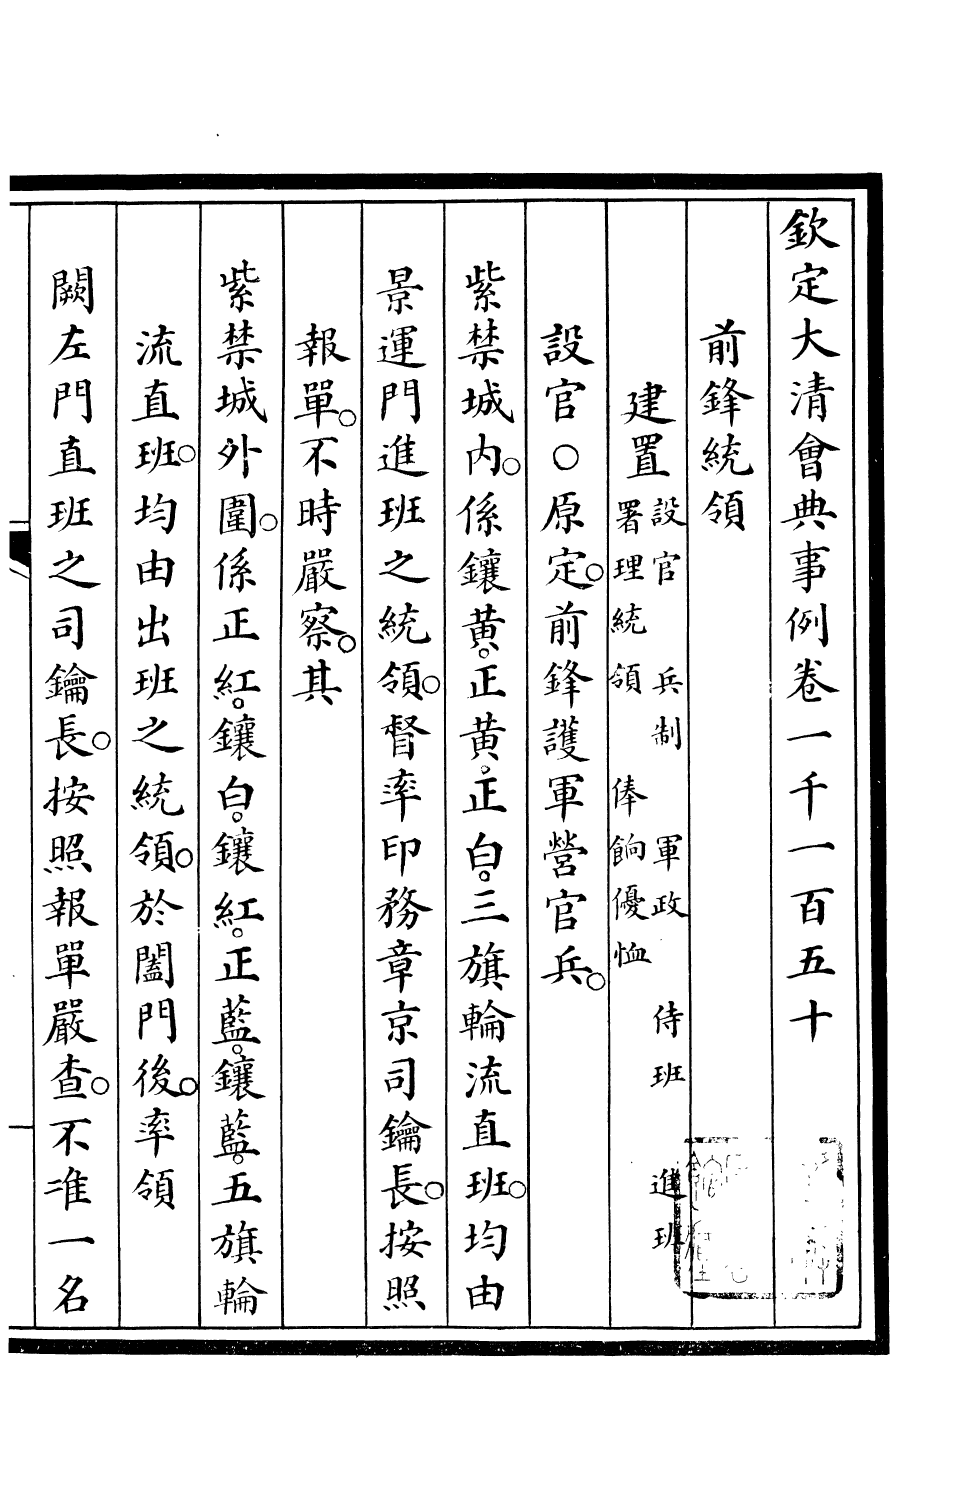 欽定大清會典事例卷一千一百五十
前鋒統領
建置設官　兵制　軍政　侍班　進班
署理統領　俸餉優恤
設官○原定。前鋒護軍營官兵。
紫禁城內。係鑲黃。正黃。正白。三旗輪流直班。均由
景運門進班之統領。督率印務章京司鑰長。按照
報單。不時嚴察。其
紫禁城外圍。係正紅。鑲白。鑲紅。正藍。鑲藍。五旗輪
流直班。均由出班之統領。於闔門後。率領
闕左門直班之司鑰長。按照報單嚴查。不准一名